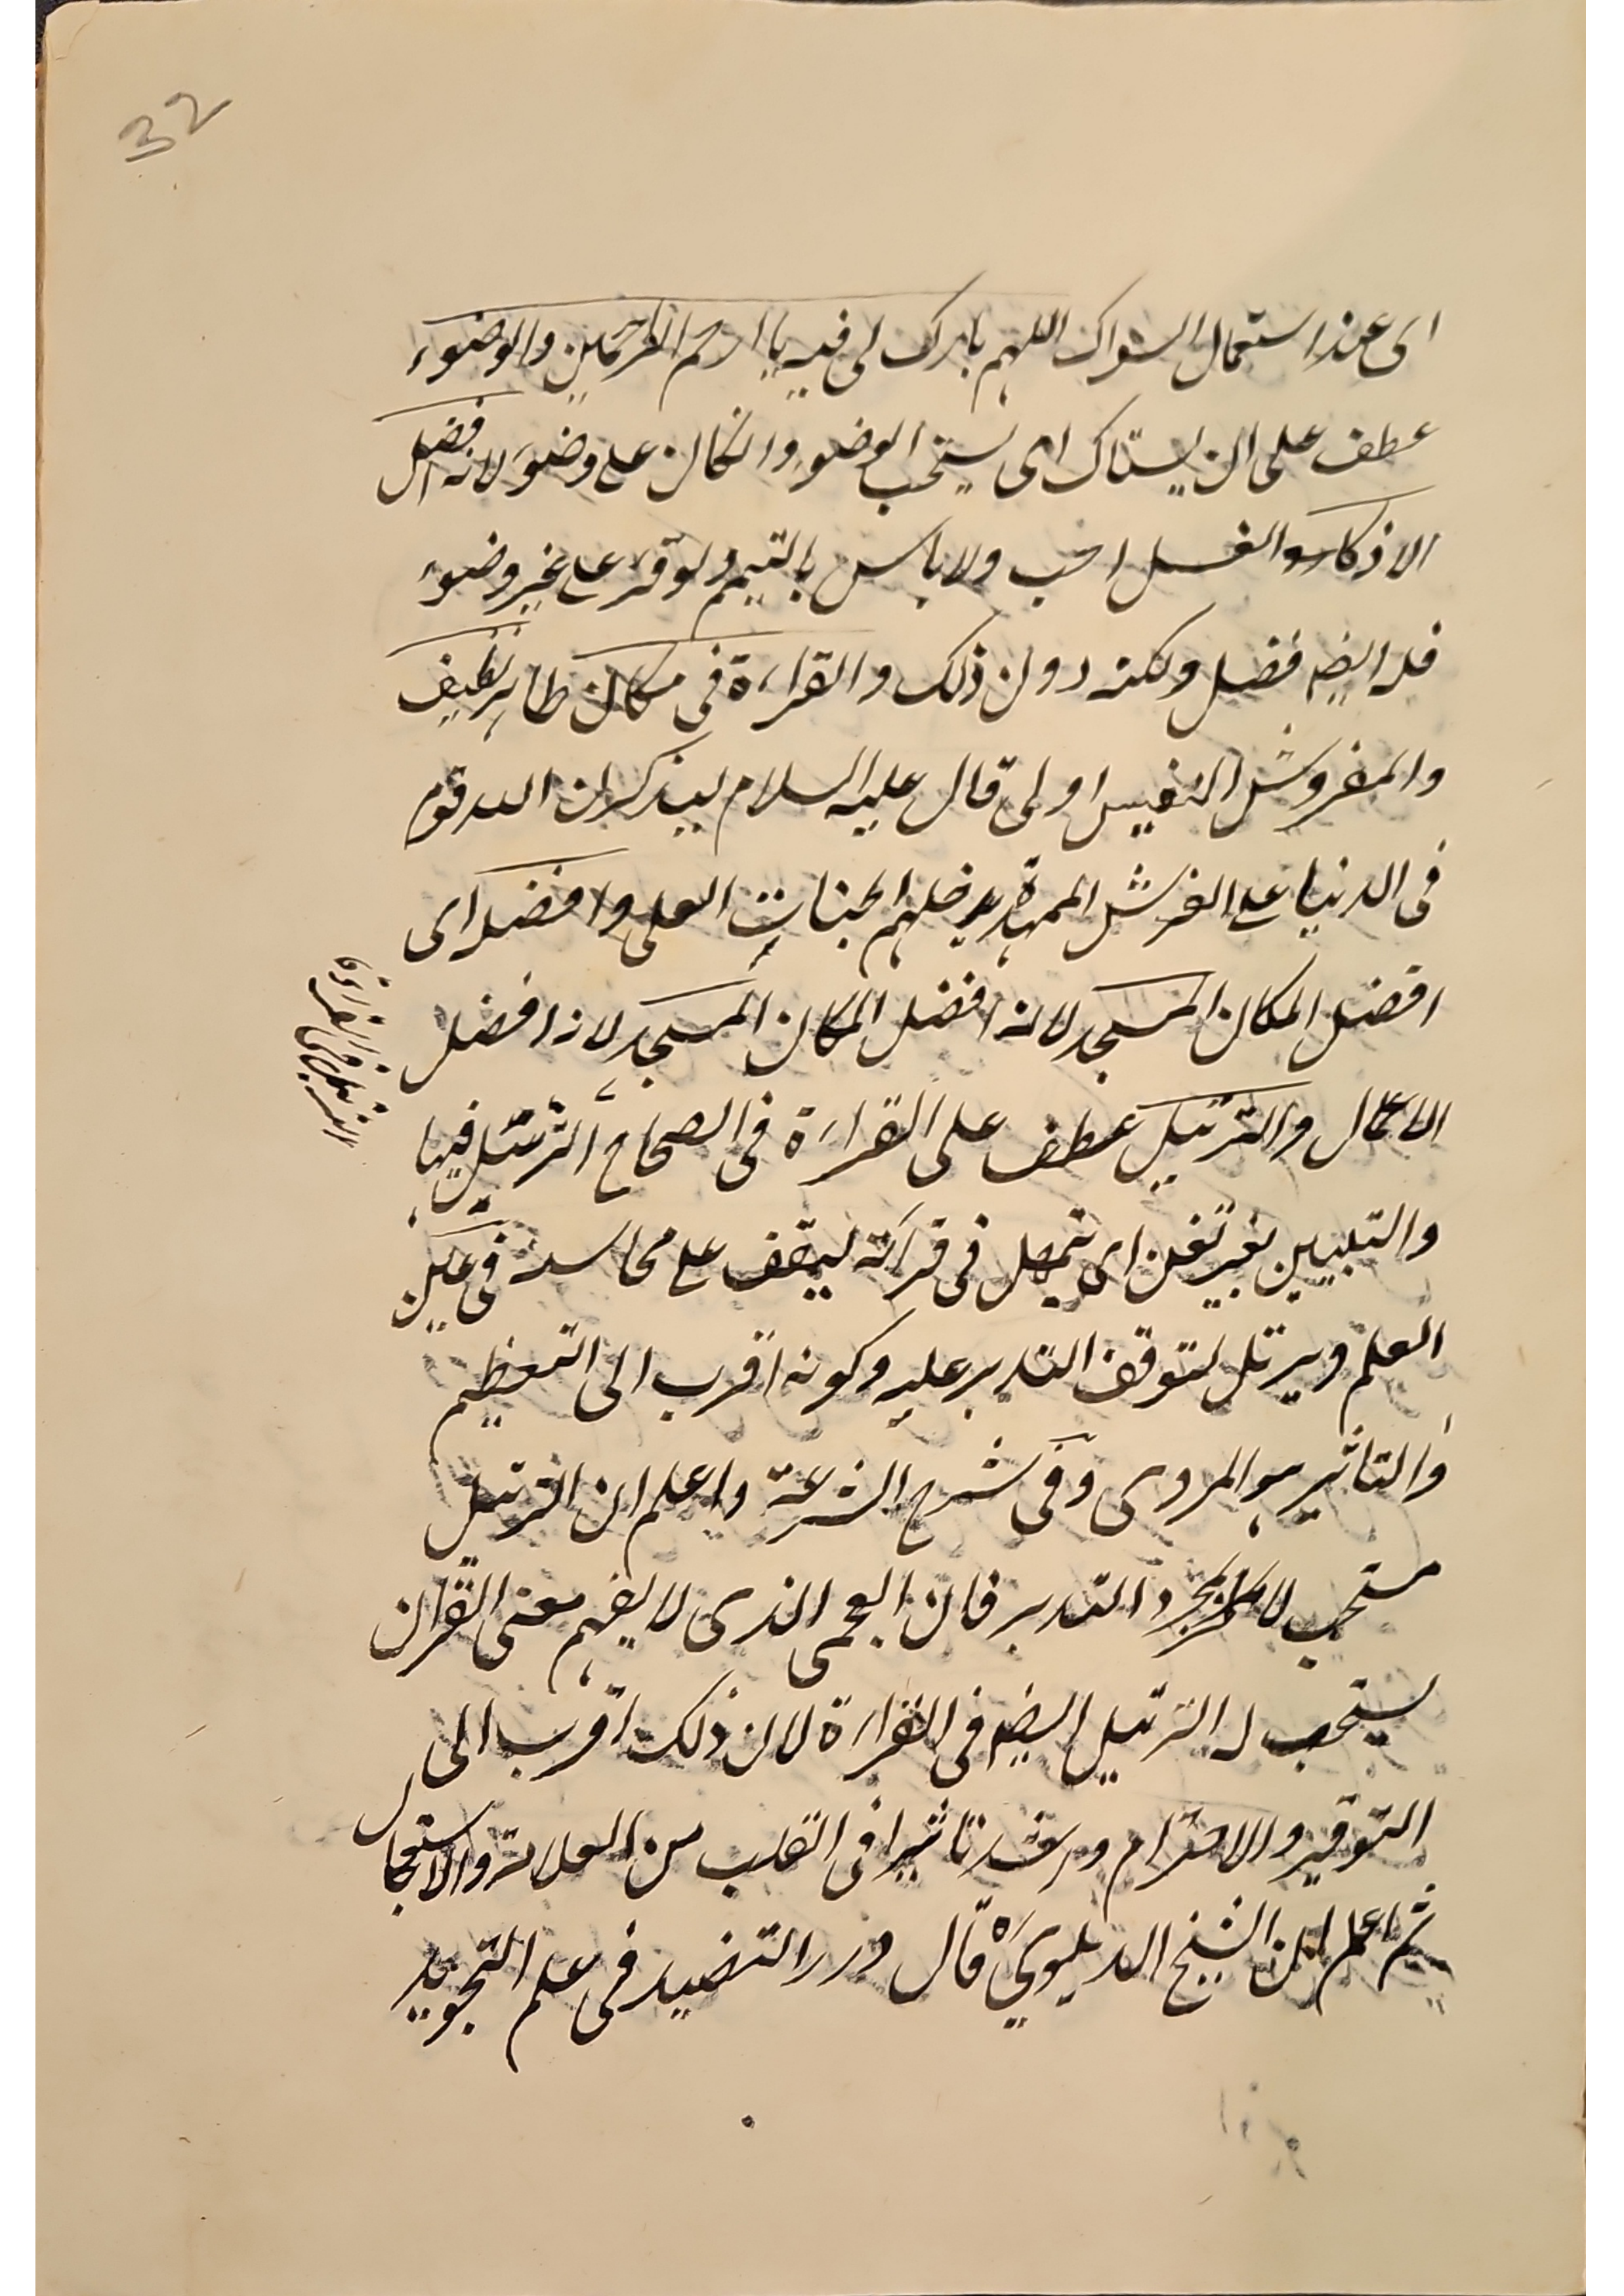 32
اى عند استعمال السواك اللهم بارك لى فيه يا ارحم الراحمين والوضوء
عطف على ان يستاك اى يستحب الوضوء وان كان على وضوء لانه افضل
الاذكار والغسل احب ولا باس بالتيمم ولو قرء على غير وضوء
فله ايضه فضل ولكنه دون ذلك والقراءة فى مكان طاهر نظيف
والمفروش النفيس اولى قال عليه السلام ليذكرن الله قوم
فى الدنيا على الفرش الممهدة يدخلهم الجنات العلى وافضله اى
افضل المكان المسجد لانه افضل المكان المسجد لانه افضل
الاعمال والترتيل عطف على القراءة فى الصحاح الترتيل فيها
والتبيين بغير تغن اى تمهل فى قرائته ليقف على محاسنه فى عين
العلم ويرتل لتوقف التدبر عليه وكونه اقرب الى التعظيم
والتاثير هو المروى وفى شرح الشرعة واعلم ان الترتيل
مستحب لا لمجرد التدبر فان العجمى الذى لا يفهم معنى القران
يستحب له الترتيل ايضه فى القراءة لان ذلك اقرب الى
التوقير والاحترام واشد تاثيرا فى القلب من والاستعجال
ثم اعلم ان الشيخ الدهلوى ره قال درر النضيد فى علم التجويد